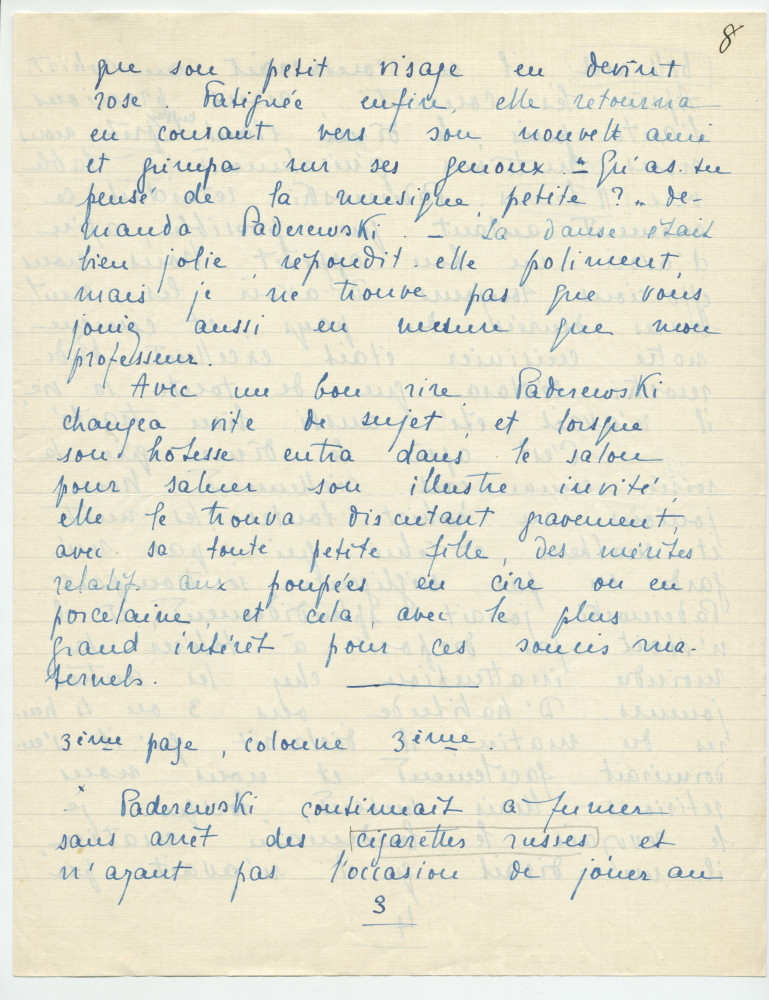 8
que son petit visage en devînt
rose. Fatiguée enfin, elle retourna
en courant vers son nouvelt ami
et grimpa sur ses genoux "Qu'as-tu
pensé de la musique, petite?" de-
manda Paderewski. – La danse était
bien jolie, répondit-elle poliment,
mais je ne trouve pas que vous
jouiez aussi en mesure que mon
professeur.
Avec un bon rire Paderewski
changea vite de sujet, et lorsque
son hôtesse entra dans le salon
pour saluer son illustre invité,
elle le trouva discutant gravement,
avec sa toute petite fille, des mérites
relatifs aux poupées en cire ou en
porcelaine, et cela, avec le plus
grand intérêt pour ces soucis ma-
ternels.
3ième page, colonne 3ième.
Paderewski continuait à fumer
sans arrêt des cigarettes russes et
n'ayant pas l'occasion de jouer au
3